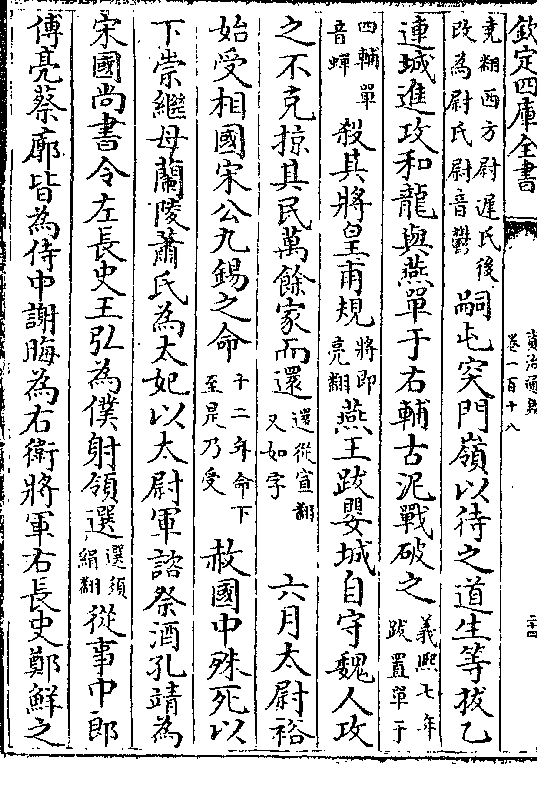 欽定四庫全書
資治通鑑
卷一百十八
竟翻西方尉遲氏後改為尉氏尉音鬱嗣屯突門嶺以待之道生等拔乙
連城進攻和龍與燕單于右輔古泥戰破之義熙七年跋置單于
四輔單音蟬殺其將皇甫規將即亮翻燕王跋嬰城自守魏人攻
之不克掠其民萬餘家而還還從宣翻又如字 六月太尉裕
始受相國宋公九錫之命十二年命下至是乃受赦國中殊死以
下崇繼母蘭陵蕭氏為太妃以太尉軍諮祭酒孔靖為
宋國尚書令左長史王弘為僕射領選選須絹翻從事中郎
傅亮蔡廓皆為侍中謝晦為右衛將軍右長史鄭鮮之